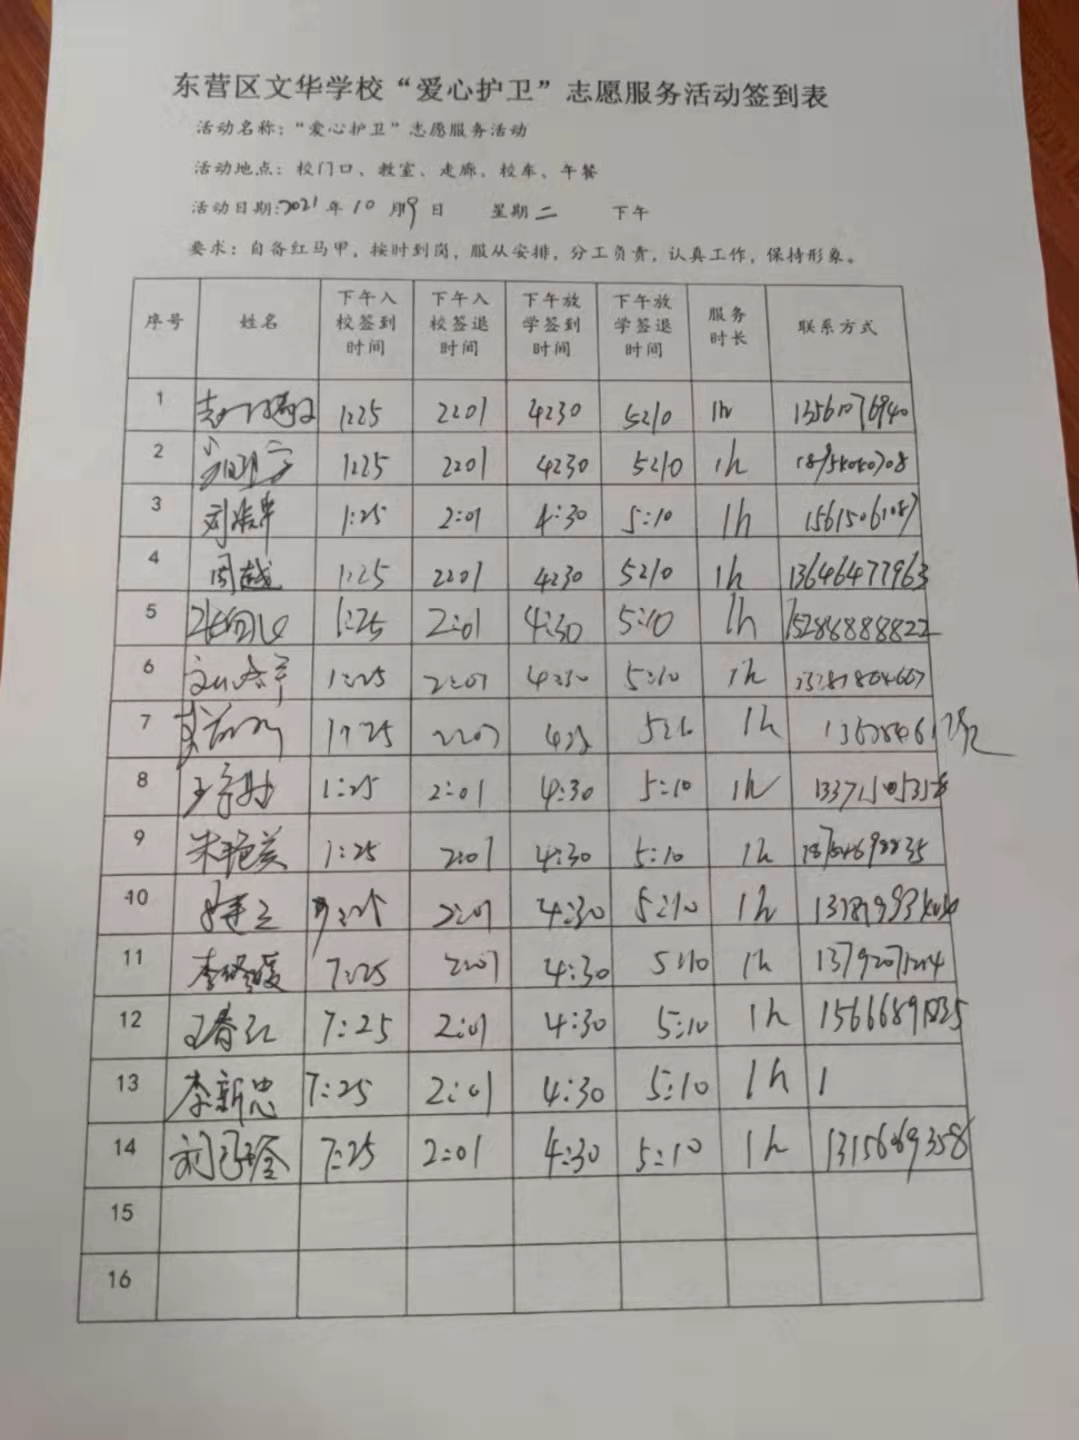 东营区文华学校“爱心护卫”志愿服务活动签到表
活动名称：“爱心护卫”志愿服务活动
活动地点：校门口、教室、走廊、校车、午餐
活动日期：2021年10月19日 星期二 下午
要求：自备红马甲，按时到岗，服从安排，分工负责，认真工作，保持形象。
序号 姓名 下午入校签到时间 下午入校签退时间 下午放学签到时间 下午放学签退时间 服务时长 联系方式
1 1:25 2:01 4:30 5:10 1h 13561076940
2 1:25 2:01 4:30 5:10 1h
3 刘海华 1:25 2:01 4:30 5:10 1h 15615061087
4 周越 1:25 2:01 4:30 5:10 1h 13646477963
5 1:25 2:01 4:30 5:10 1h 15288888822
6 1:25 2:01 4:30 5:10 1h
7 1:25 2:01 1h
8 1:25 2:01 4:30 5:10 1h
9 朱艳美 1:25 2:01 4:30 5:10 1h
10 2:01 4:30 5:10 1h
11 7:25 2:01 4:30 5:10 1h
12 王春红 7:25 2:01 4:30 5:10 1h
13 李新忠 7:25 2:01 4:30 5:10 1h 1
14 7:25 2:01 4:30 5:10 1h
15
16